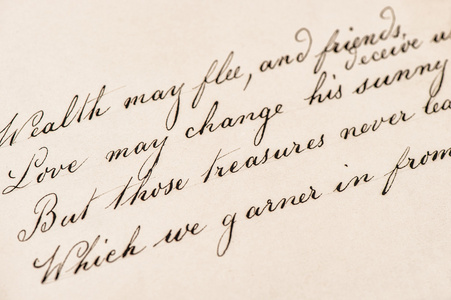 Wealth may flee, and friends
deceive
Love may change his sunny
But those treasures never
Which we garner in from